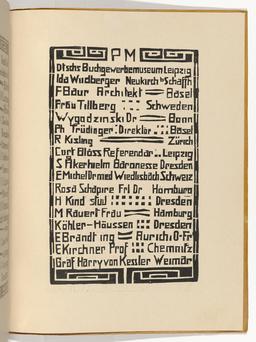 PM
Dtschs Buchgewerbemuseum Leipzig
Ida Wudberger Neukirch b Schaffh
F Baur Architekt Basel
Frau Tillberg Schweden
Wygodzinski Dr Bonn
Ph Trüdinger Direktor Basel
R Kisling Zürich
Curt Bloss Referendar Leipzig
S Åkerhelm Baronesse Dresden
E Michel Dr med Wiedlisbach Schweiz
Rosa Schapire Frl Dr Hamburg
H Kind stud Dresden
M Rauert Frau Hamburg
Köhler-Häussen Dresden
E Brandt ing Aurich O-Fr
E Kirchner Prof Chemnitz
Graf Harry von Kessler Weimar